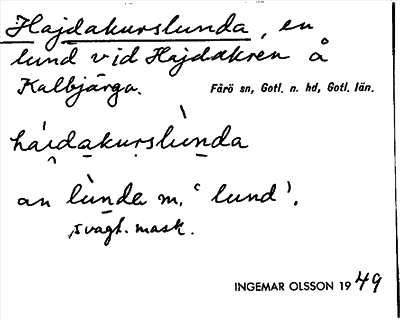 Hajdakurslunda, en
lund vid Hajdakren å
Kalbjärga. Fårö sn, Gotl. n. hd, Gotl. län.
háidakurslùnda
an lùnda m. ‘lund’.
svagt. mask.
INGEMAR OLSSON 1949